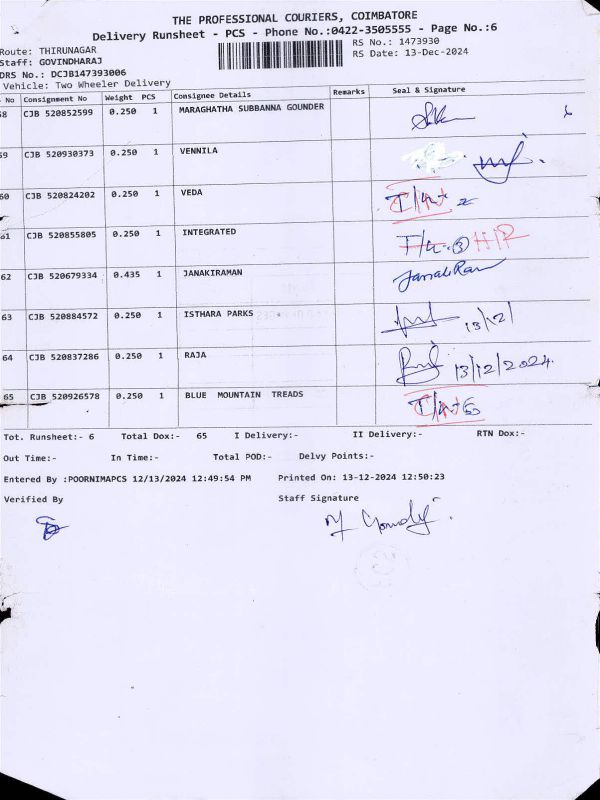 THE PROFESSIONAL COURIERS, COIMBATORE
Delivery Runsheet - PCS - Phone No.:0422-3505555 - Page No.:6
Route: THIRUNAGAR
RS No.: 1473930
Staff: GOVINDHARAJ
RS Date: 13-Dec-2024
DRS No.: DCJB147393006
Vehicle: Two Wheeler Delivery
No Consignment No Weight PCS Consignee Details Remarks Seal & Signature
58 CJB 520852599 0.250 1 MARAGHATHA SUBBANNA GOUNDER
59 CJB 520930373 0.250 1 VENNILA
60 CJB 520824202 0.250 1 VEDA
61 CJB 520855805 0.250 1 INTEGRATED
62 CJB 520679334 0.435 1 JANAKIRAMAN
63 CJB 520884572 0.250 1 ISTHARA PARKS 13/12/
64 CJB 520837286 0.250 1 RAJA 13/12/2024.
65 CJB 520926578 0.250 1 BLUE MOUNTAIN TREADS
Tot. Runsheet:- 6 Total Dox:- 65 I Delivery:- II Delivery:- RTN Dox:-
Out Time:- In Time:- Total POD:- Delvy Points:-
Entered By :POORNIMAPCS 12/13/2024 12:49:54 PM Printed On: 13-12-2024 12:50:23
Verified By Staff Signature